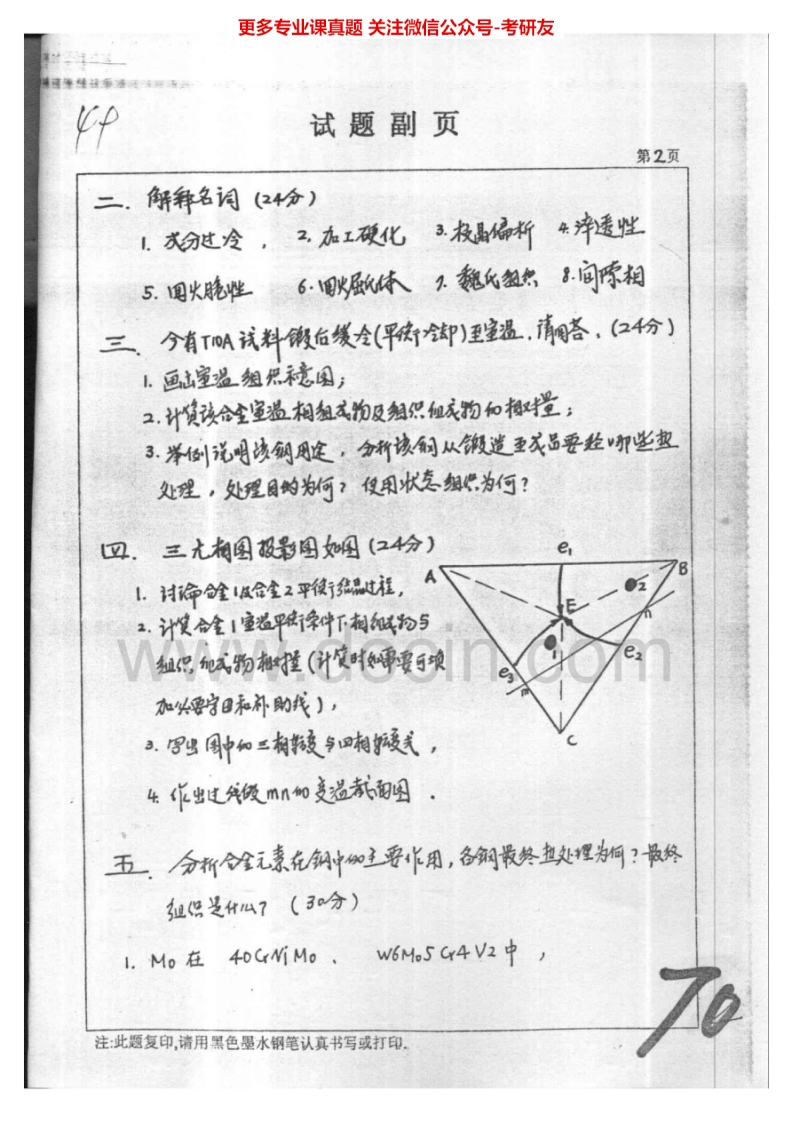 更多专业课真题 关注微信公众号-考研友
44
试题副页
第2页
二. 解释名词 (24分)
1. 成分过冷, 2. 加工硬化 3. 枝晶偏析 4. 淬透性
5. 回火脆性 6. 回火屈氏体 7. 魏氏组织 8. 间隙相
三. 今有T10A试料锻后缓冷(平衡冷却)至室温,请回答,(24分)
1. 画出室温组织示意图;
2. 计算该合金室温相组成物及组织组成物的相对量;
3. 举例说明该钢用途,分析该钢从锻造至成品要经哪些热
处理,处理目的为何?使用状态组织为何?
四. 三元相图投影图如图(24分)
1. 讨论合金1及合金2平衡结晶过程,
2. 计算合金1室温平衡条件下相组成物与
组织组成物相对量(计算时如需要可填
加必要字母和补助线),
3. 写出图中的三相转变与四相转变式,
4. 作出过线段mn的变温截面图.
A e1 B
E 2 n
1 e2
e3 m
C
www.docin.com
五. 分析合金元素在钢中的主要作用,各钢最终热处理为何?最终
组织是什么?(30分)
1. Mo在 40CrNiMo、 W6Mo5Cr4V2中,
70
注:此题复印,请用黑色墨水钢笔认真书写或打印.